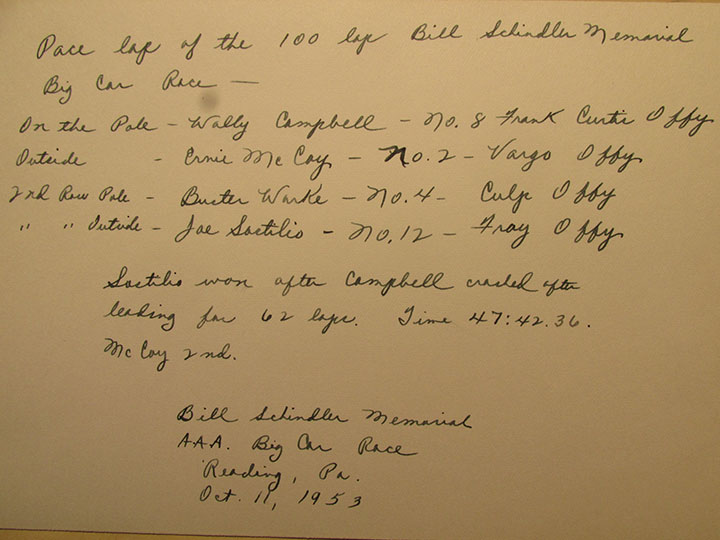 Pace lap of the 100 lap Bill Schindler Memorial
Big Car Race —
On the Pole - Wally Campbell - No. 8 Frank Curtis Offy
Outside - Ernie McCoy - No. 2 - Vargo Offy
2nd Row Pole - Buster Warke - No. 4 - Culp Offy
" " Outside - Joe Sostilio - No. 12 - Fray Offy
Sostilio won after Campbell crashed after
leading for 62 laps. Time 47:42.36.
McCoy 2nd.
Bill Schindler Memorial
A.A.A. Big Car Race
Reading, Pa.
Oct. 11, 1953